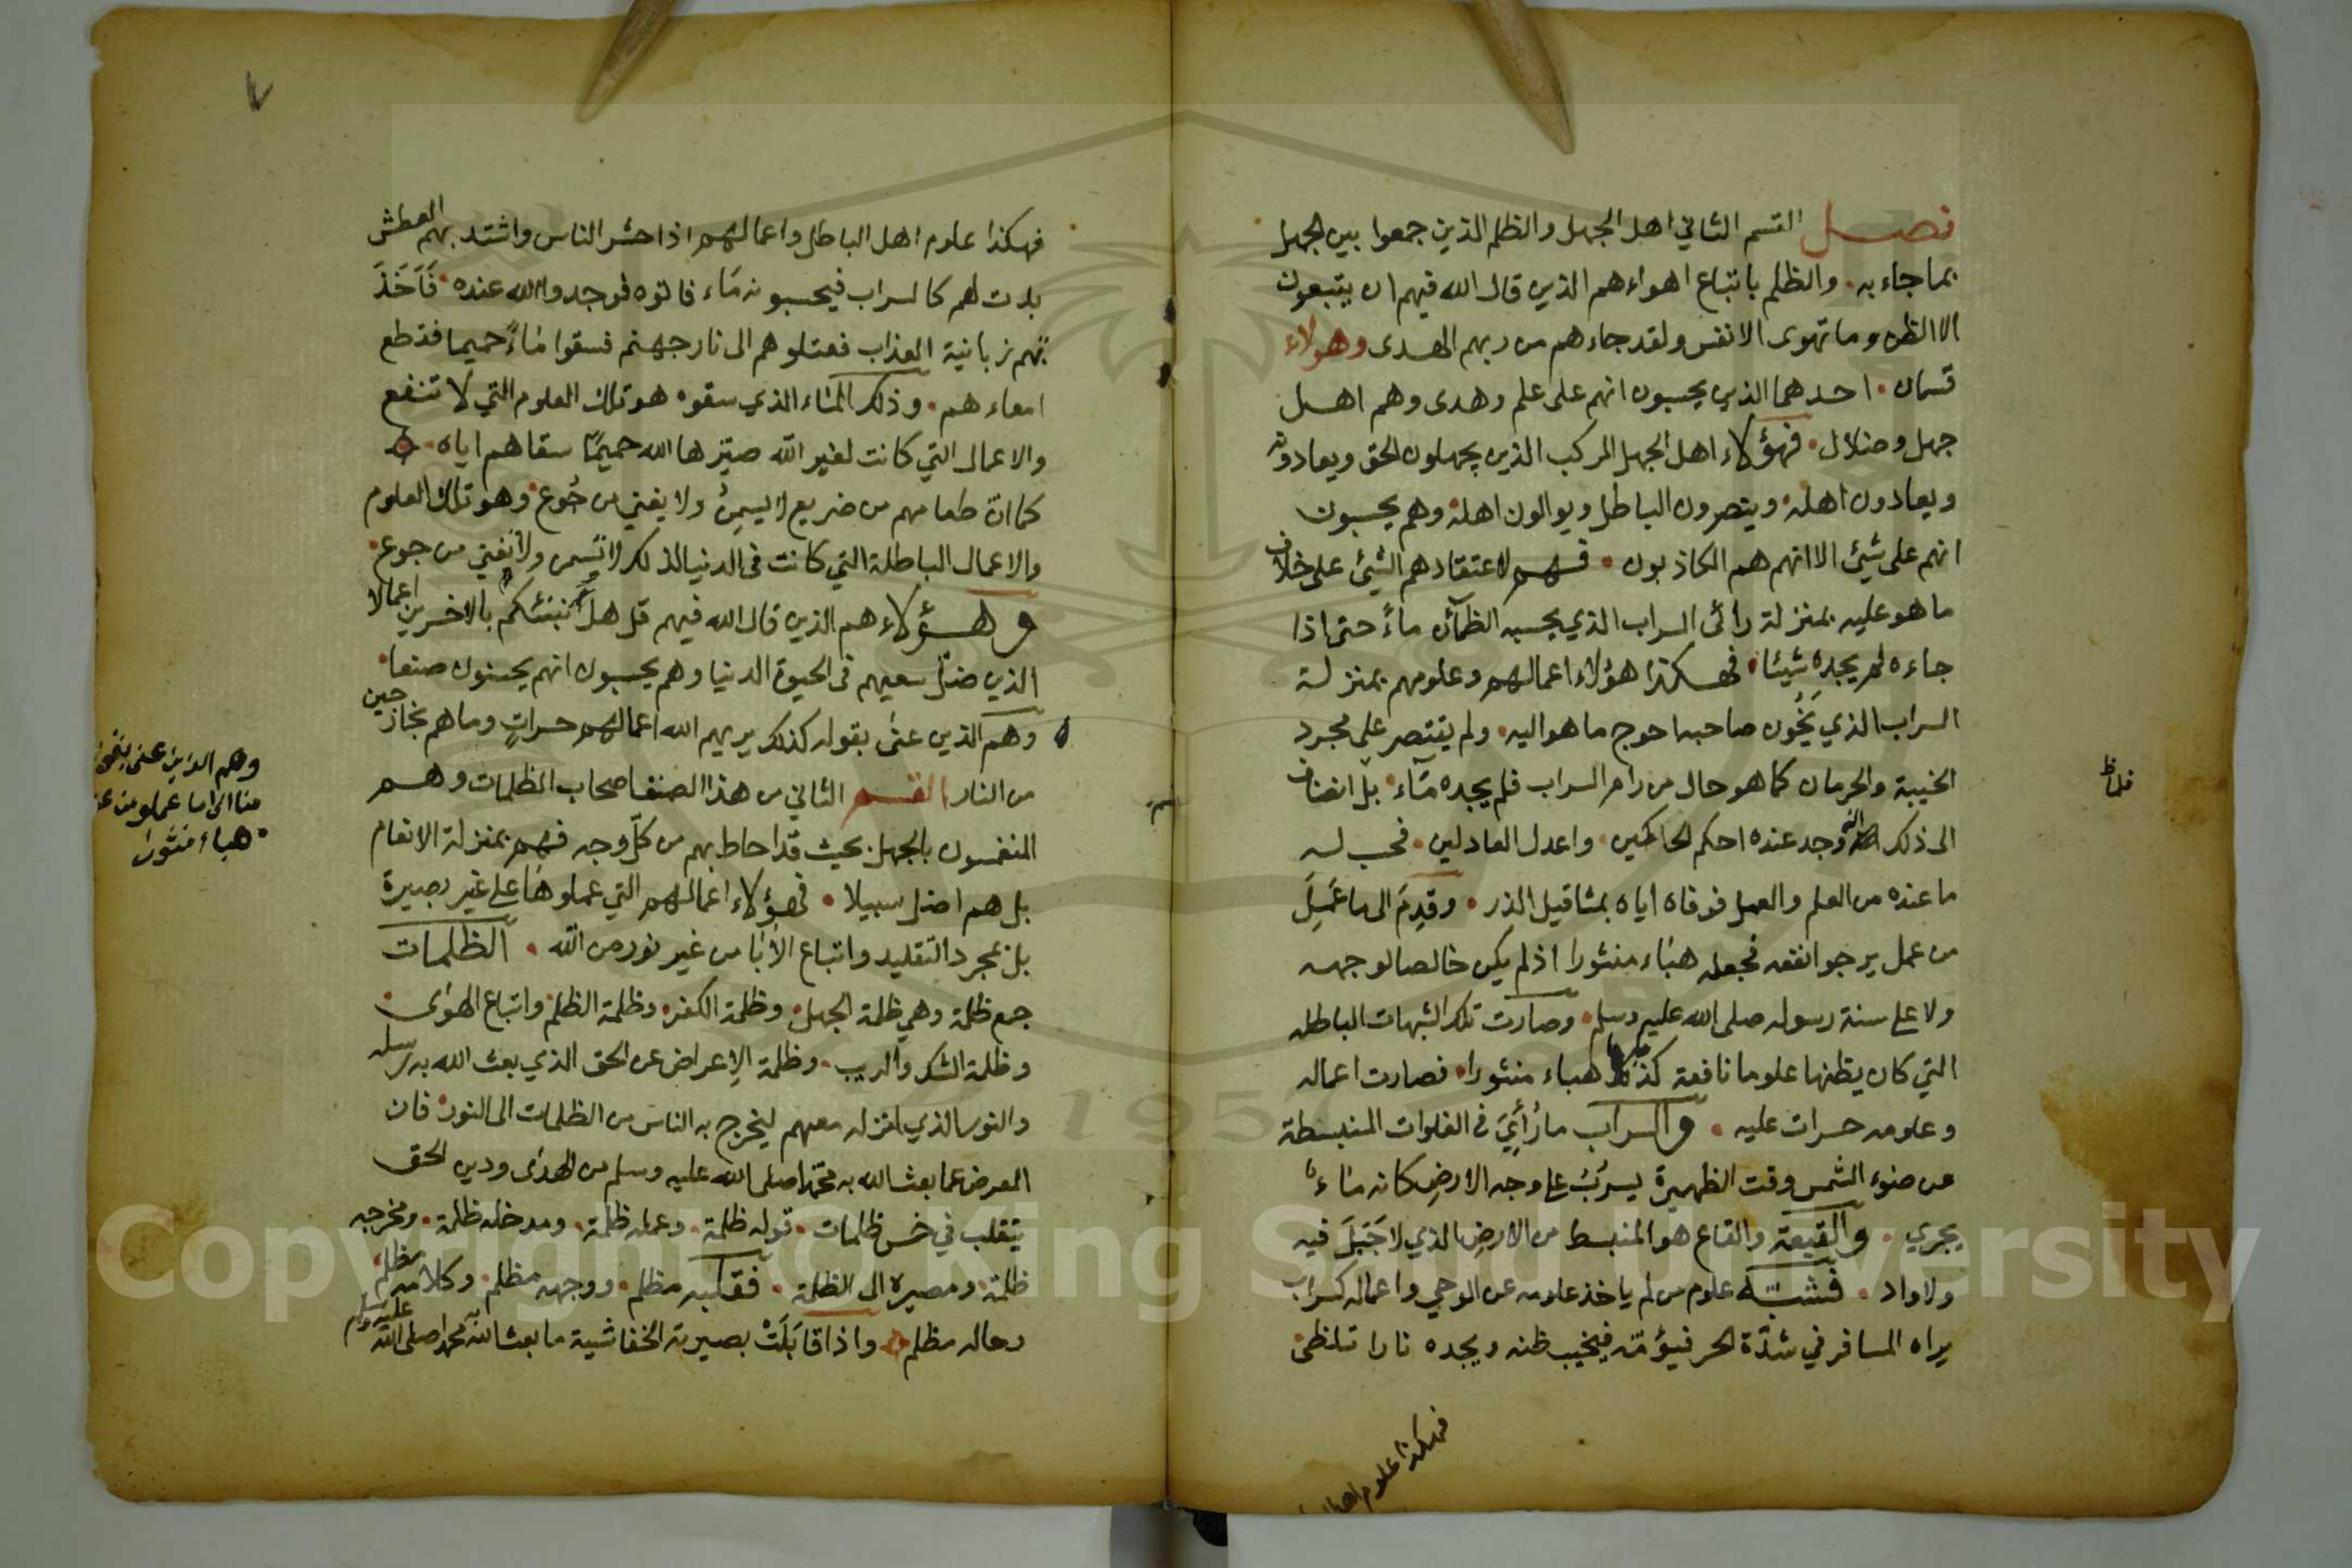 فصل القسم الثاني اهل الجهل والظلم الذين جمعوا بين الجهل
بما جاء به والظلم باتباع اهواءهم الذين قال الله فيهم ان يتبعون
الا الظن وما تهوى الانفس ولقد جاءهم من ربهم الهدى وهولاء
قسمان احدهما الذين يحسبون انهم على علم وهدى وهم اهل
جهل وضلال فهؤلاء اهل الجهل المركب الذين يجهلون الحق ويعادونه
ويعادون اهله وينصرون الباطل ويوالون اهله وهم يحسبون
انهم على شيئ الا انهم هم الكاذبون فهم لاعتقادهم الشيئ على خلاف
ما هو عليه بمنزلة رائى السراب الذي يحسبه الظمآن ماءً حتى اذا
جاءه لم يجده شيئا فهكذا هؤلاء اعمالهم وعلومهم بمنزلة
السراب الذي يَخُون صاحبه احوج ما هو اليه ولم يقتصر على مجرد
الخيبة والحرمان كما هو حال من رام السراب فلم يجده مآء بل انضاف
الى ذلك انه وجد عنده احكم الحاكمين واعدل العادلين فحسب له
ما عنده من العلم والعمل فوفاه اياه بمثاقيل الذر وقدِمَ الى ما عَمِلَ
من عمل يرجوا نفعه فجعله هباء منثورا اذ لم يكن خالصا لوجهه
ولا على سنة رسوله صلى الله عليه وسلم وصارت تلك الشبهات الباطله
التي كان يظنها علوما نافعة كذلك هباء منثورا فصارت اعماله
وعلومه حسرات عليه والسراب ما رُأيَ في الفلوات المنبسطة
من ضوء الشمس وقت الظهيرة يسرُبُ على وجه الارض كانه ماءٌ
يجري والقيعة والقاع هو المنبسط من الارض الذي لا جَبَلَ فيه
ولا واد فشبّه علوم من لم ياخذ علومه من الوحي واعماله كسراب
يراه المسافر في شدّة الحر فيؤمّه فيخيب ظنه ويجده نارا تلظى
فهكذا علوم اهل
فهكذا علوم اهل الباطل واعمالهم اذا حشر الناس واشتد بهم العطش
بدت لهم كالسراب فيحسبونه مَاء فاتوه فوجدوا الله عنده فَاَخَذَ
تهم زبانية العذاب فعتلوهم الى نار جهنم فسقوا مَاءً حميما فقطع
امعاءهم وذلك الماء الذي سقوه هو تلك العلوم التي لا تنفع
والاعمال التي كانت لغير الله صيّرها الله حميمًا سقاهم اياه
كما انّ طعامهم من ضريع لا يسمنُ ولا يغني من جُوع وهو تلك العلوم
والاعمال الباطلة التي كانت في الدنيا لذلك لا تسمن ولا تغني من جوع
وهؤلاء هم الذين قال الله فيهم قل هل ننبئكم بالاخسرين اعمالا
الذين ضلّ سعيهم في الحيوة الدنيا وهم يحسبون انهم يحسنون صنعا
وهم الذين عنى بقوله كذلك يريهم الله اعمالهم حسراتٍ وما هم بخارجين
من النار القسم الثاني من هذا الصنف اصحاب الظلمات وهم
المنغمسون بالجهل بحيث قد احاط بهم من كلّ وجه فهم بمنزلة الانعام
بل هم اضل سبيلا فهؤلاء اعمالهم التي عملوها على غير بصيرة
بل بمجرد التقليد واتباع الآبا من غير نور من الله الظلمات
جمع ظلمة وهي ظلمة الجهل وظلمة الكفر وظلمة الظلم واتباع الهوى
وظلمة الشك والريب وظلمة الاِعراض عن الحق الذي بعث الله به رسله
والنور الذي انزله معهم ليخرج به الناس من الظلمات الى النور فان
المعرض عما بعث الله به محمّدا صلى الله عليه وسلم من الهدى ودين الحق
يتقلب في خمس ظلمات قوله ظلمة وعمله ظلمة ومدخله ظلمة ومخرجه
ظلمة ومصيره الى الظلمة فقلبه مظلم ووجهه مظلم وكلامه مظلم
وحاله مظلم واذا قابَلَتْ بصيرته الخفاشية ما بعث الله محمدا صلى الله عليه وسلم
وهم الذين عنى بقوله
منا الى ما عملوا من عمل
هباء منثورا